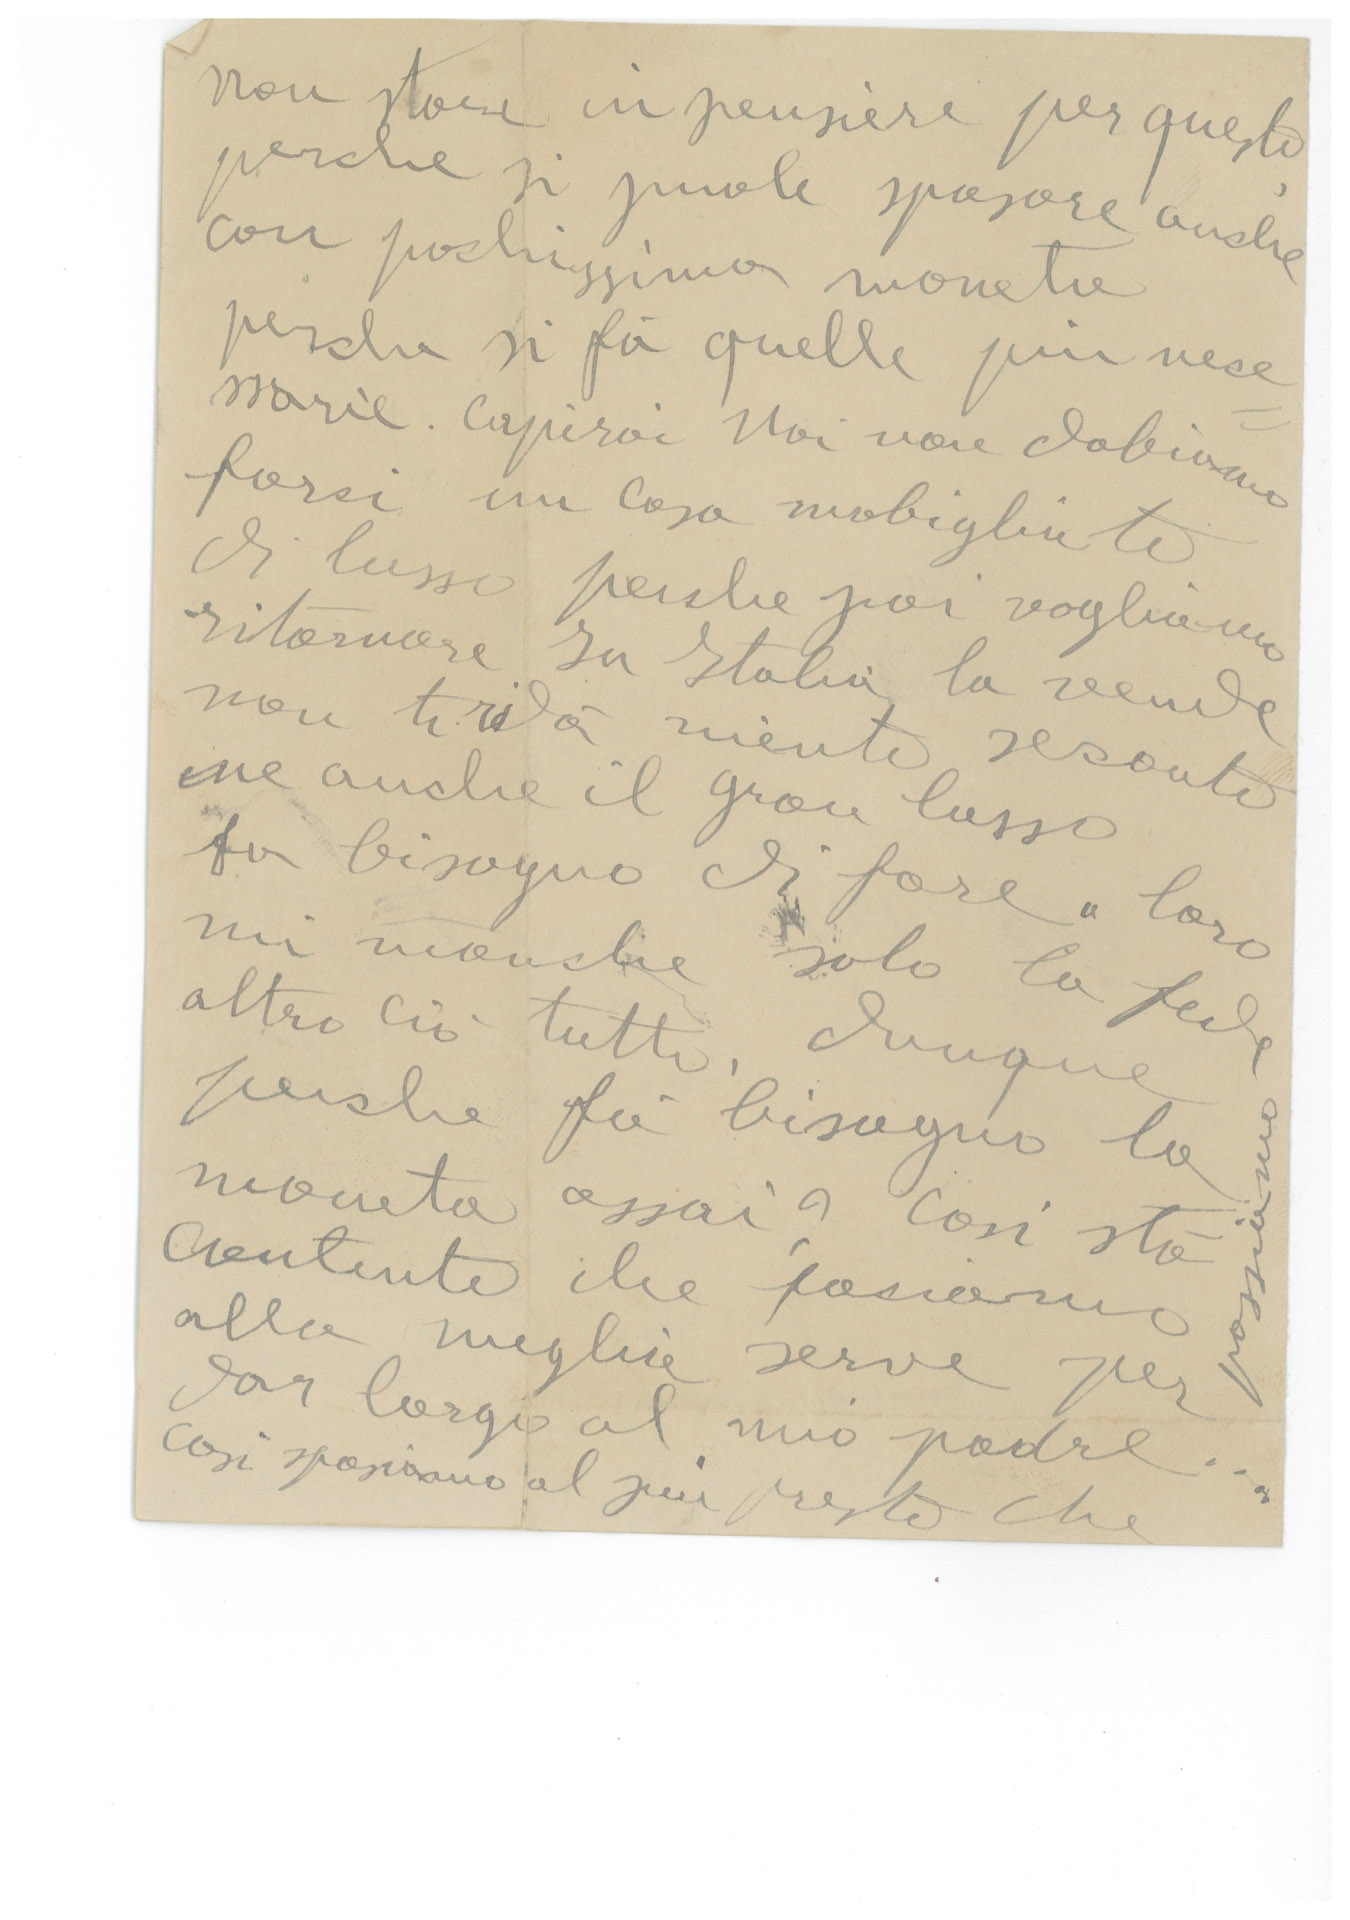 non stare in pensiere per questo,
perche si puole sposare anche
con pochissima moneta
perche si fà quelle piu nece=
ssarie. Capirai Noi non dobiamo
farsi un casa mobigliate
di lusso perche poi vogliamo
ritornare In Italia la vende
non ti ridà niente
me anche il gran lusso
fa bisogno di fare " loro
mi manche solo la fede
altro ciò tutto, dunque
perche fà bisogno la
moneta assai? Cosi stà
Contente che fasiamo
alla meglie serve per
dar largo al mio padre...
Cosi sposiamo al piu presto che
possiamo